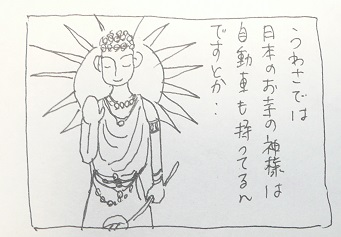 うわさでは
日本のお寺の神様は
自動車も持ってるん
ですとか‥